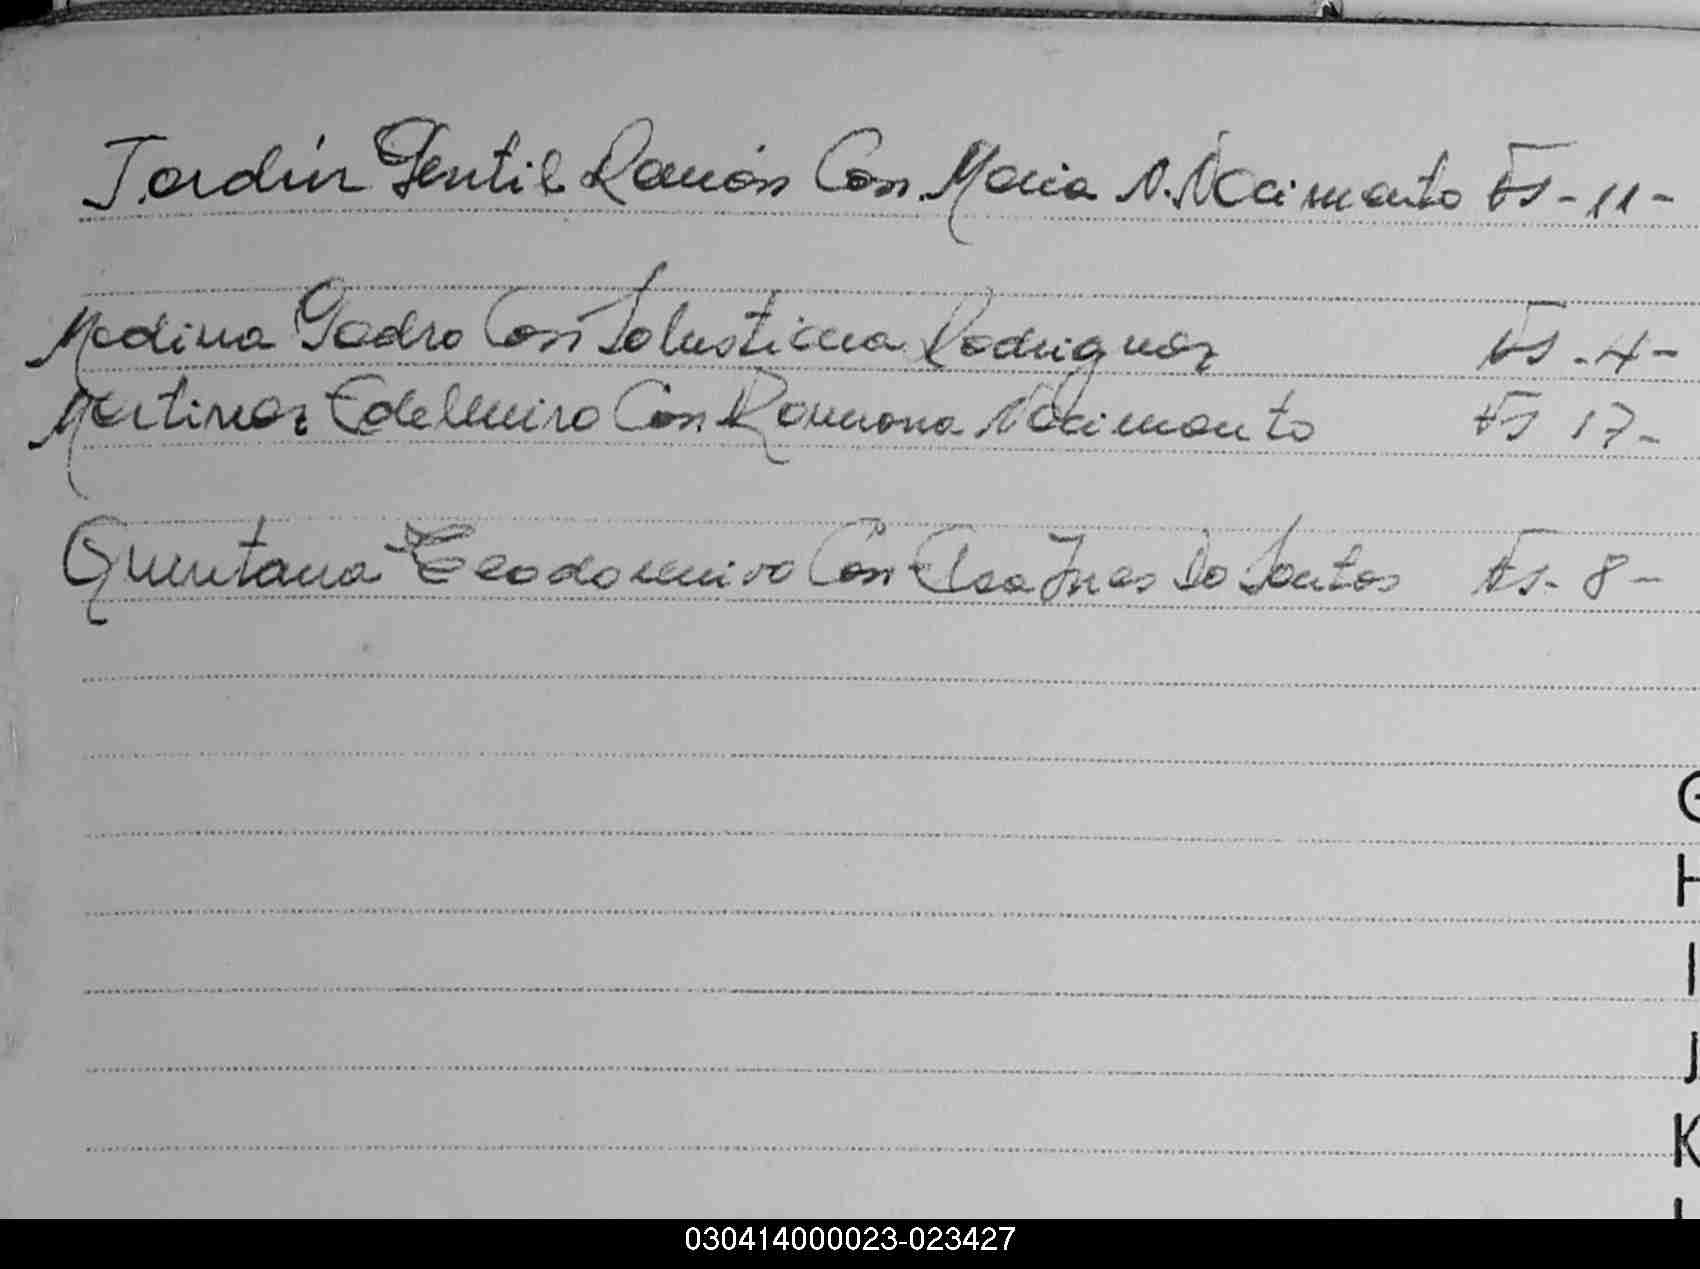 Jardín Gentil Ramón Con Maria N. Nacimento Fs - 11 -
Medina Pedro Con Salustiana Rodriguez Fs - 4 -
Martinez Edelmiro Con Ramona Nacimento Fs 17 -
Quintana Teodomiro Con Elsa Ines Do Santos Fs - 8 -
G
H
I
J
K
L
030414000023-023427